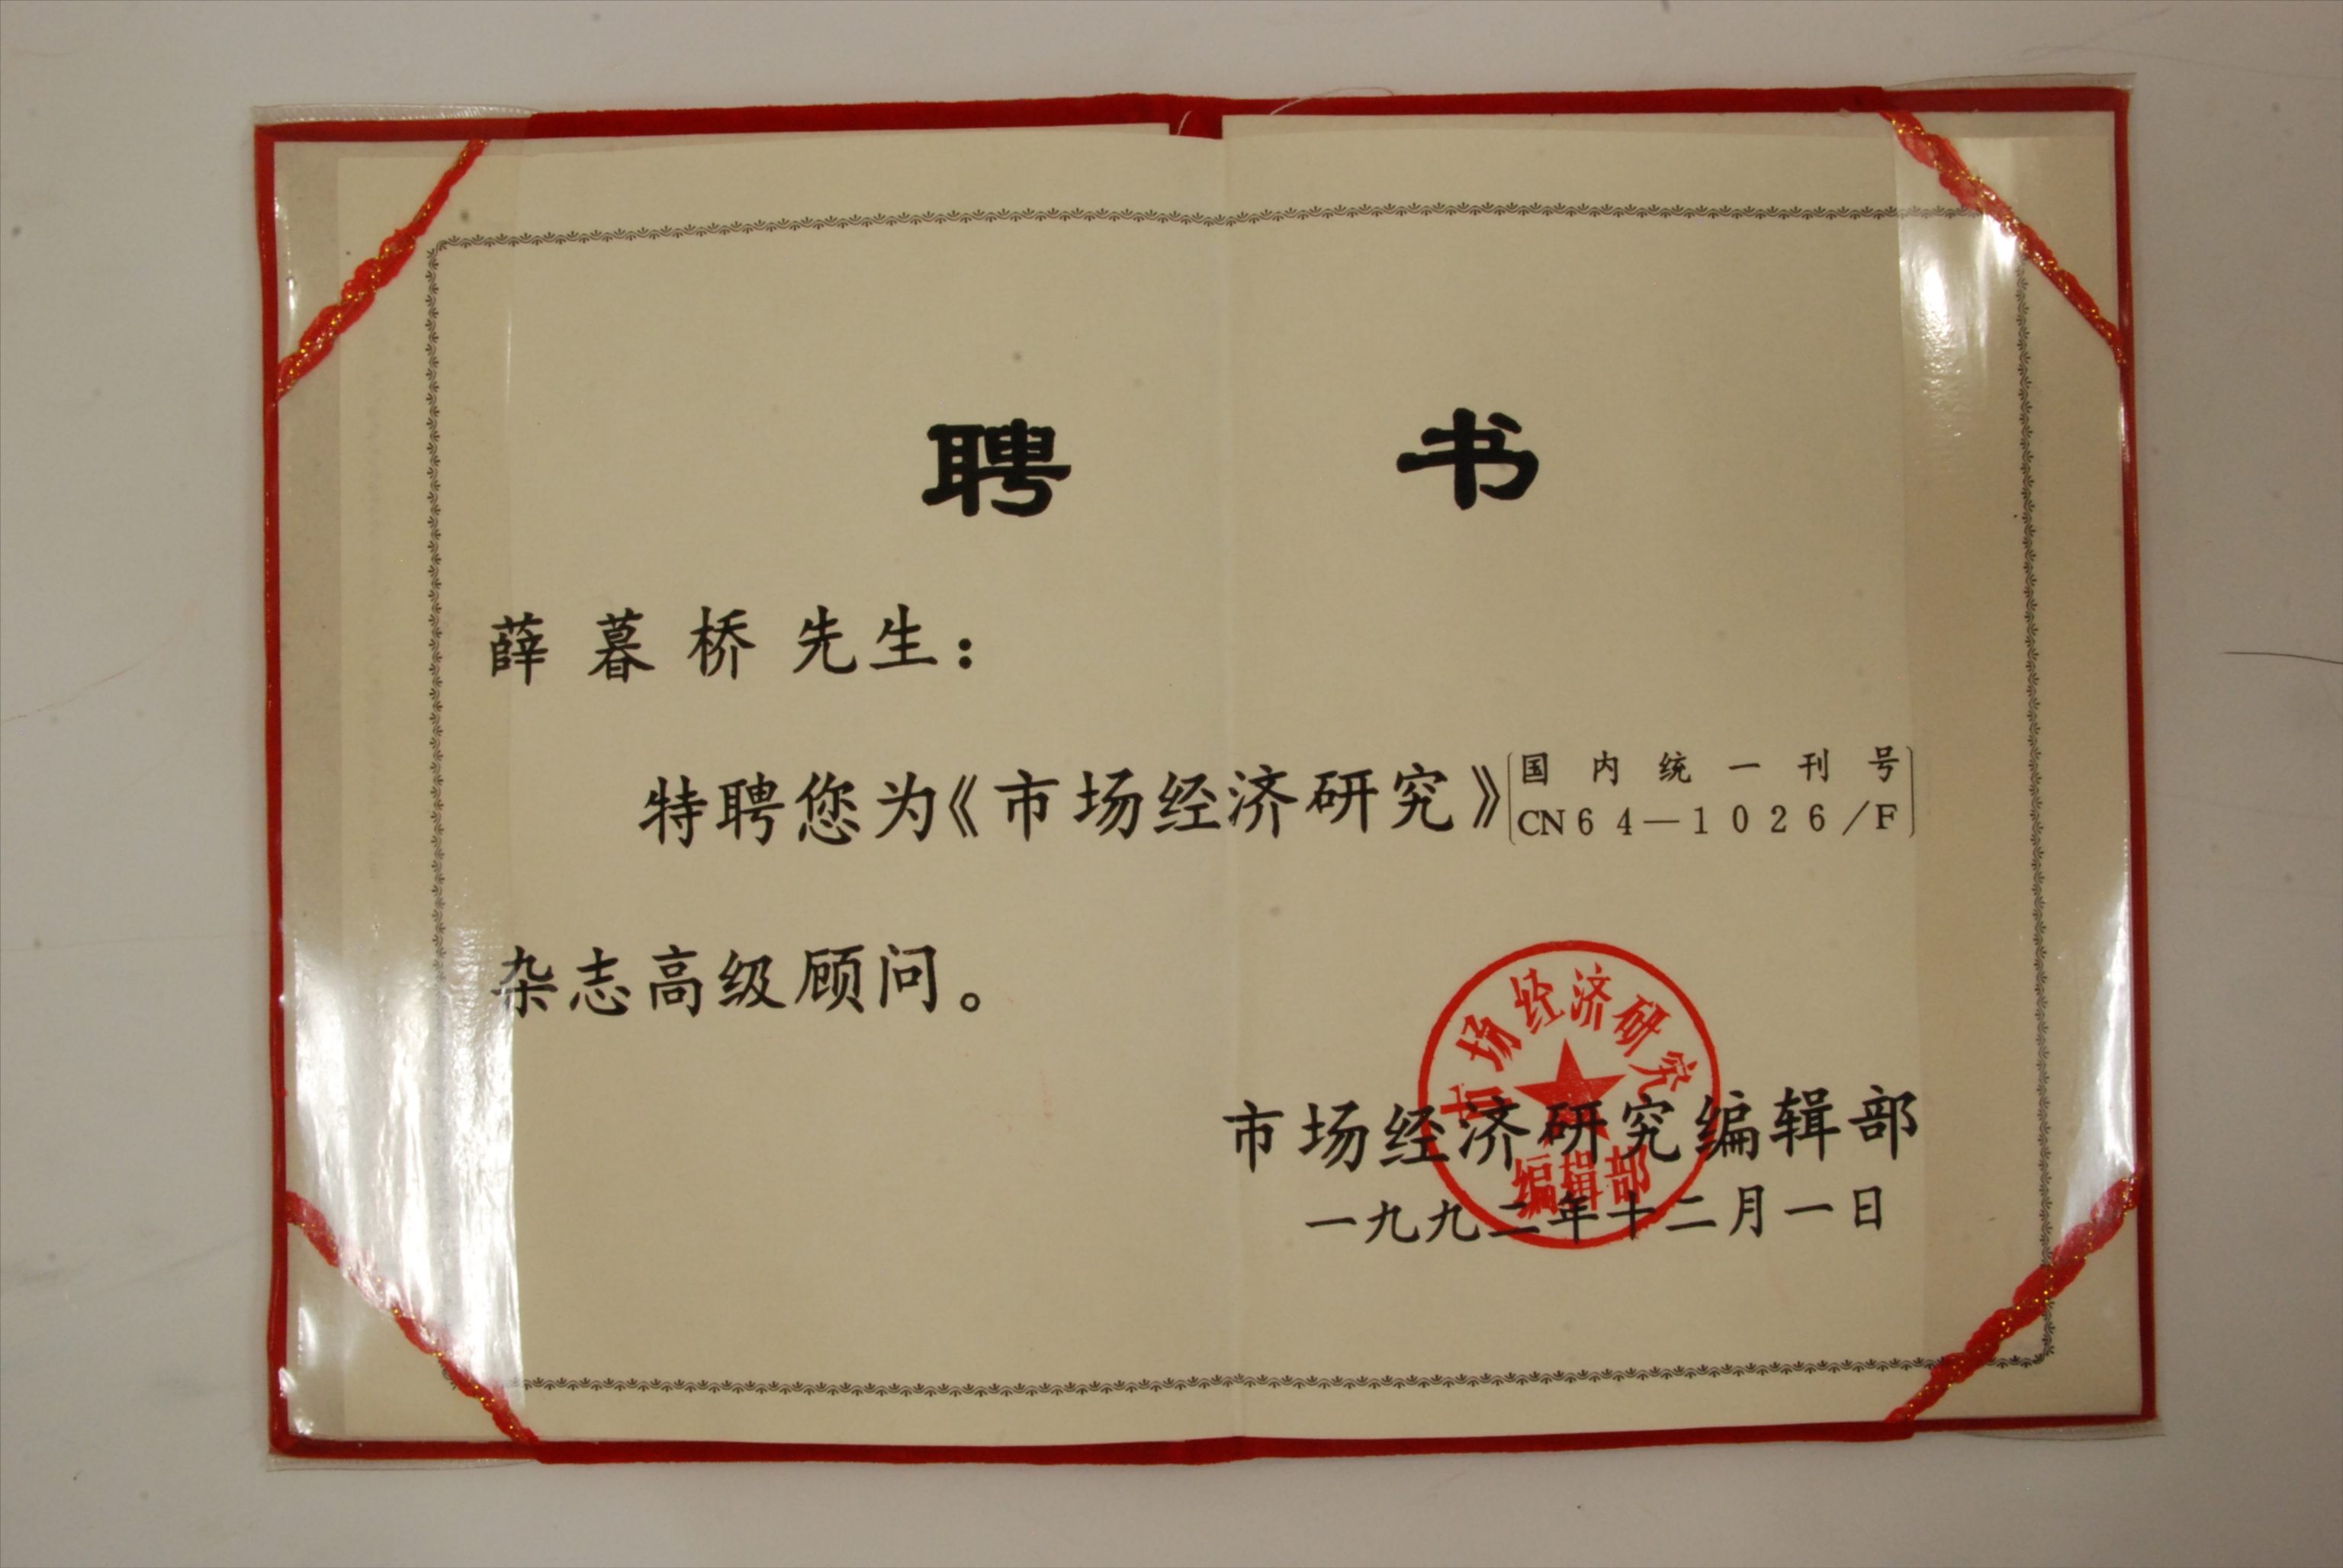 聘书
薛暮桥先生：
特聘您为《市场经济研究》〔国内统一刊号
CN64—1026/F〕
杂志高级顾问。
市场经济研究
编辑部
市场经济研究编辑部
一九九二年十二月一日